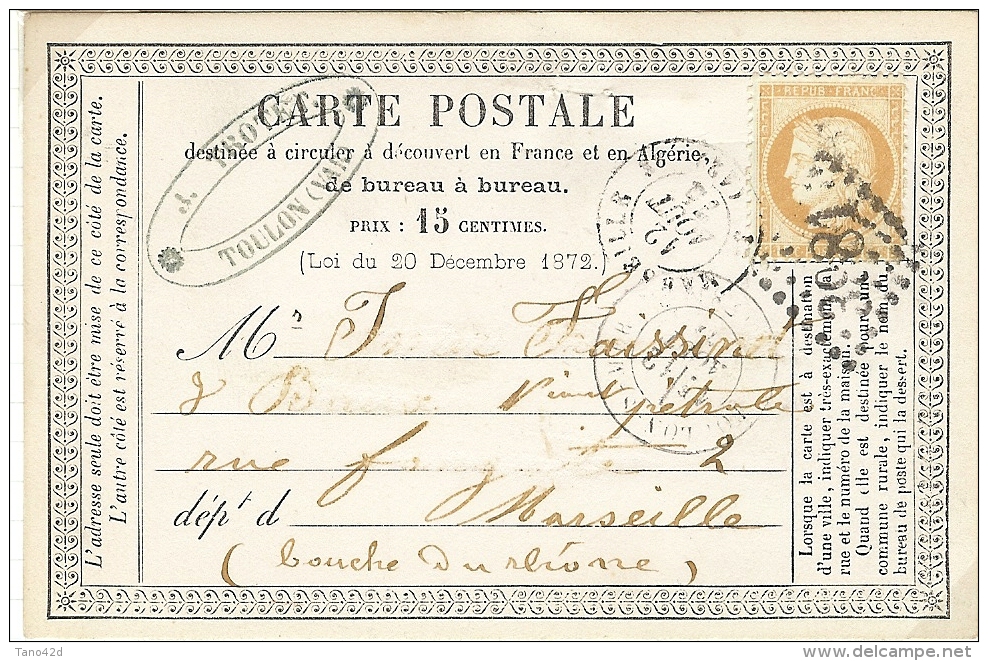 CARTE POSTALE
destinée à circuler à découvert en France et en Algérie
de bureau à bureau.
PRIX : 15 CENTIMES.
(Loi du 20 Décembre 1872.)
J. ROYET
TOULON (VAR)
REPUB. FRANC.
3987
12
AOUT
L'adresse seule doit être mise de ce côté de la carte.
L'autre côté est réservé à la correspondance.
Mrs
&
rue 2
dépt d Marseille
(bouche du rhône)
Lorsque la carte est à destination
d'une ville, indiquer très-exactement la
rue et le numéro de la maison.
Quand elle est destinée pour une
commune rurale, indiquer le nom du
bureau de poste qui la dessert.
Tano42d
delcampe.net